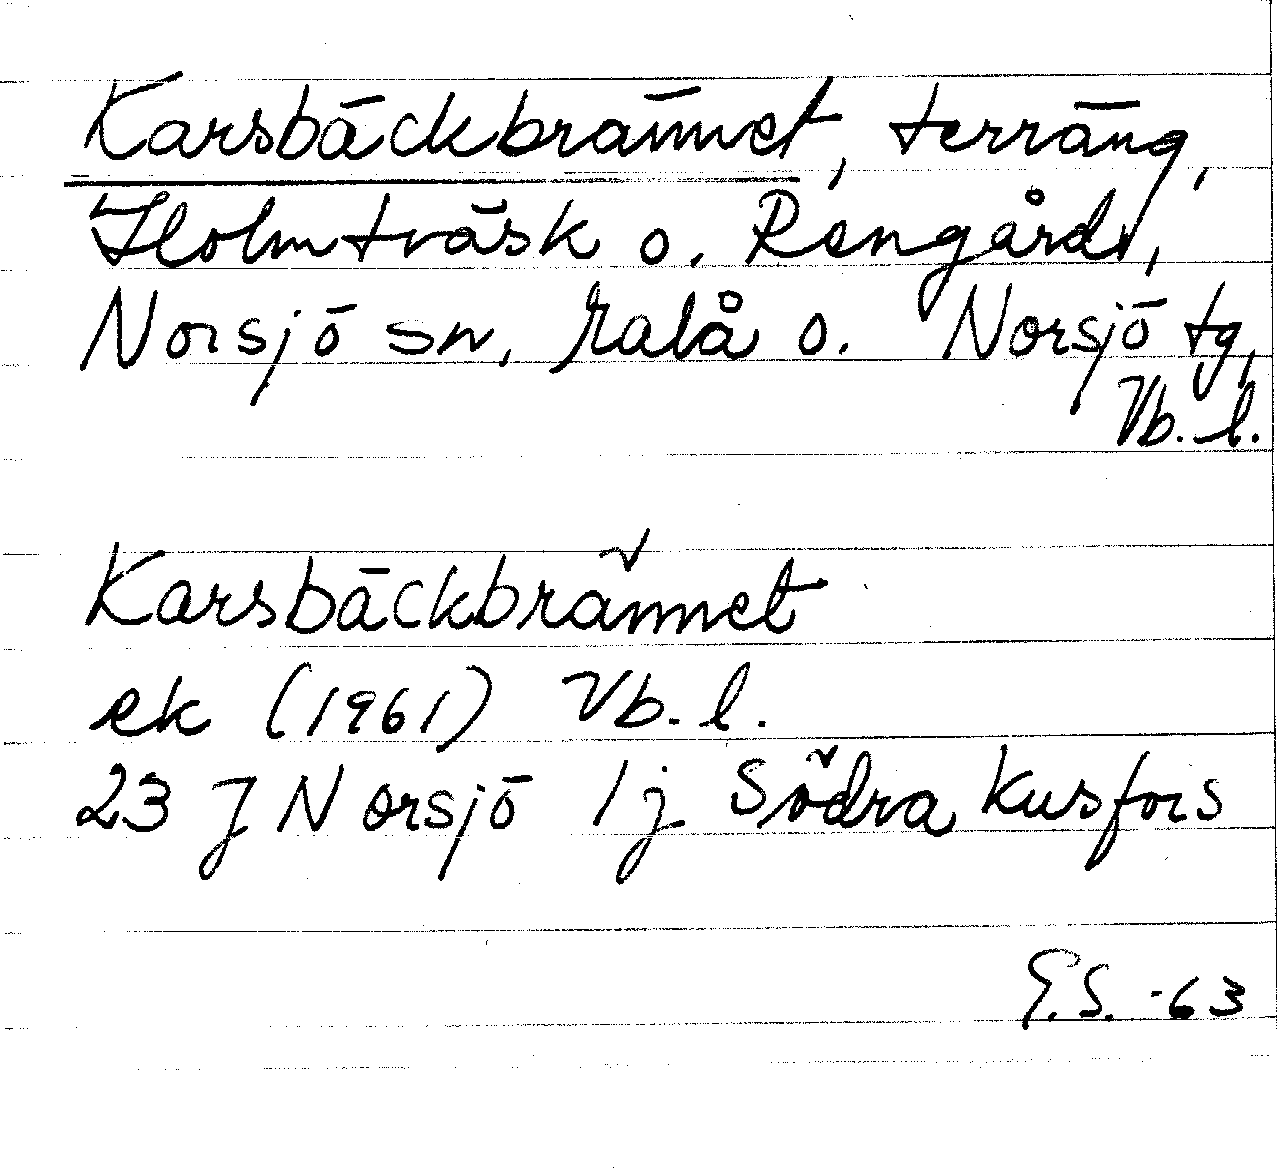 Karsbäckbrännet, terräng,
Holmträsk o. Rengård,
Norsjö sn, Malå o. Norsjö tg,
Vb. l.
Karsbäckbrännet
ek (1961) Vb. l.
23 J Norsjö 1 j. Södra Kusfors
G.S. -63